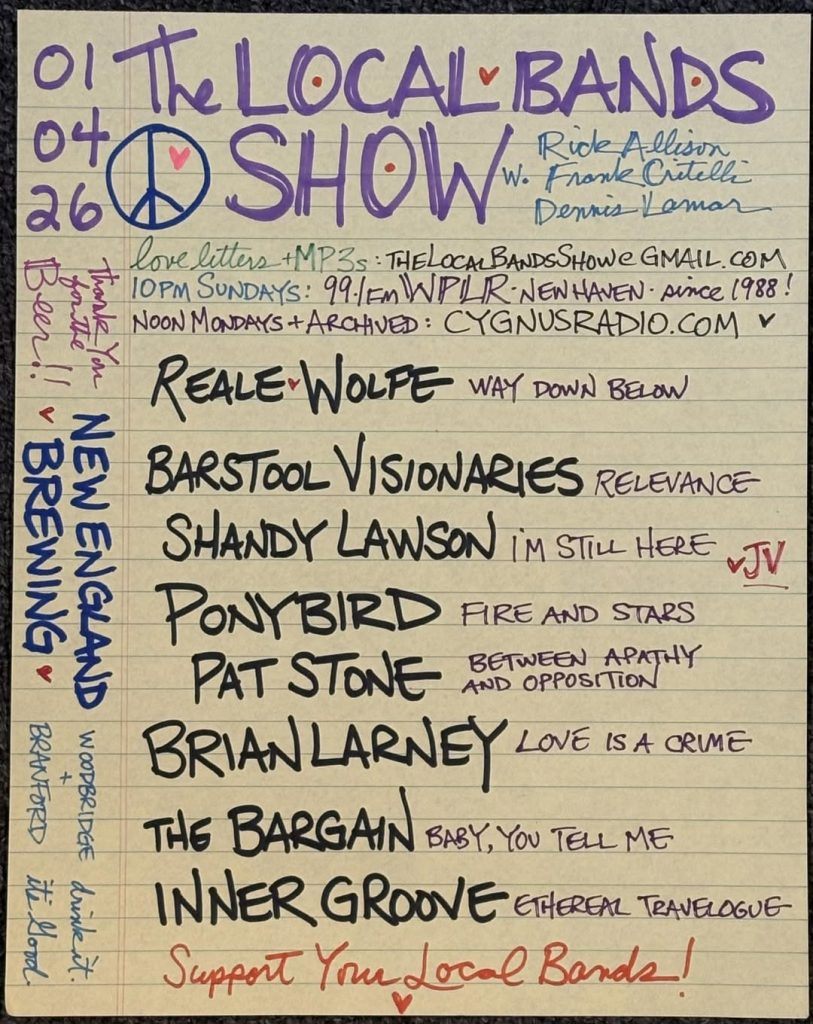 01
04
26
The LOCAL BANDS
SHOW
w. Rick Allison
Frank Critelli
Dennis Lamar
love letters + MP3s: THELOCALBANDSSHOW@GMAIL.COM
10PM SUNDAYS: 99.1FM WPLR · NEW HAVEN · since 1988!
NOON MONDAYS + ARCHIVED: CYGNUSRADIO.COM
REALE WOLFE WAY DOWN BELOW
BARSTOOL VISIONARIES RELEVANCE
SHANDY LAWSON I'M STILL HERE
JV
PONYBIRD FIRE AND STARS
PAT STONE BETWEEN APATHY
AND OPPOSITION
BRIAN LARNEY LOVE IS A CRIME
THE BARGAIN BABY, YOU TELL ME
INNER GROOVE ETHEREAL TRAVELOGUE
Support Your Local Bands!
Thank You
for the
Beer!!
NEW ENGLAND
BREWING
WOODBRIDGE
+
BRANFORD
drink it.
it's good.